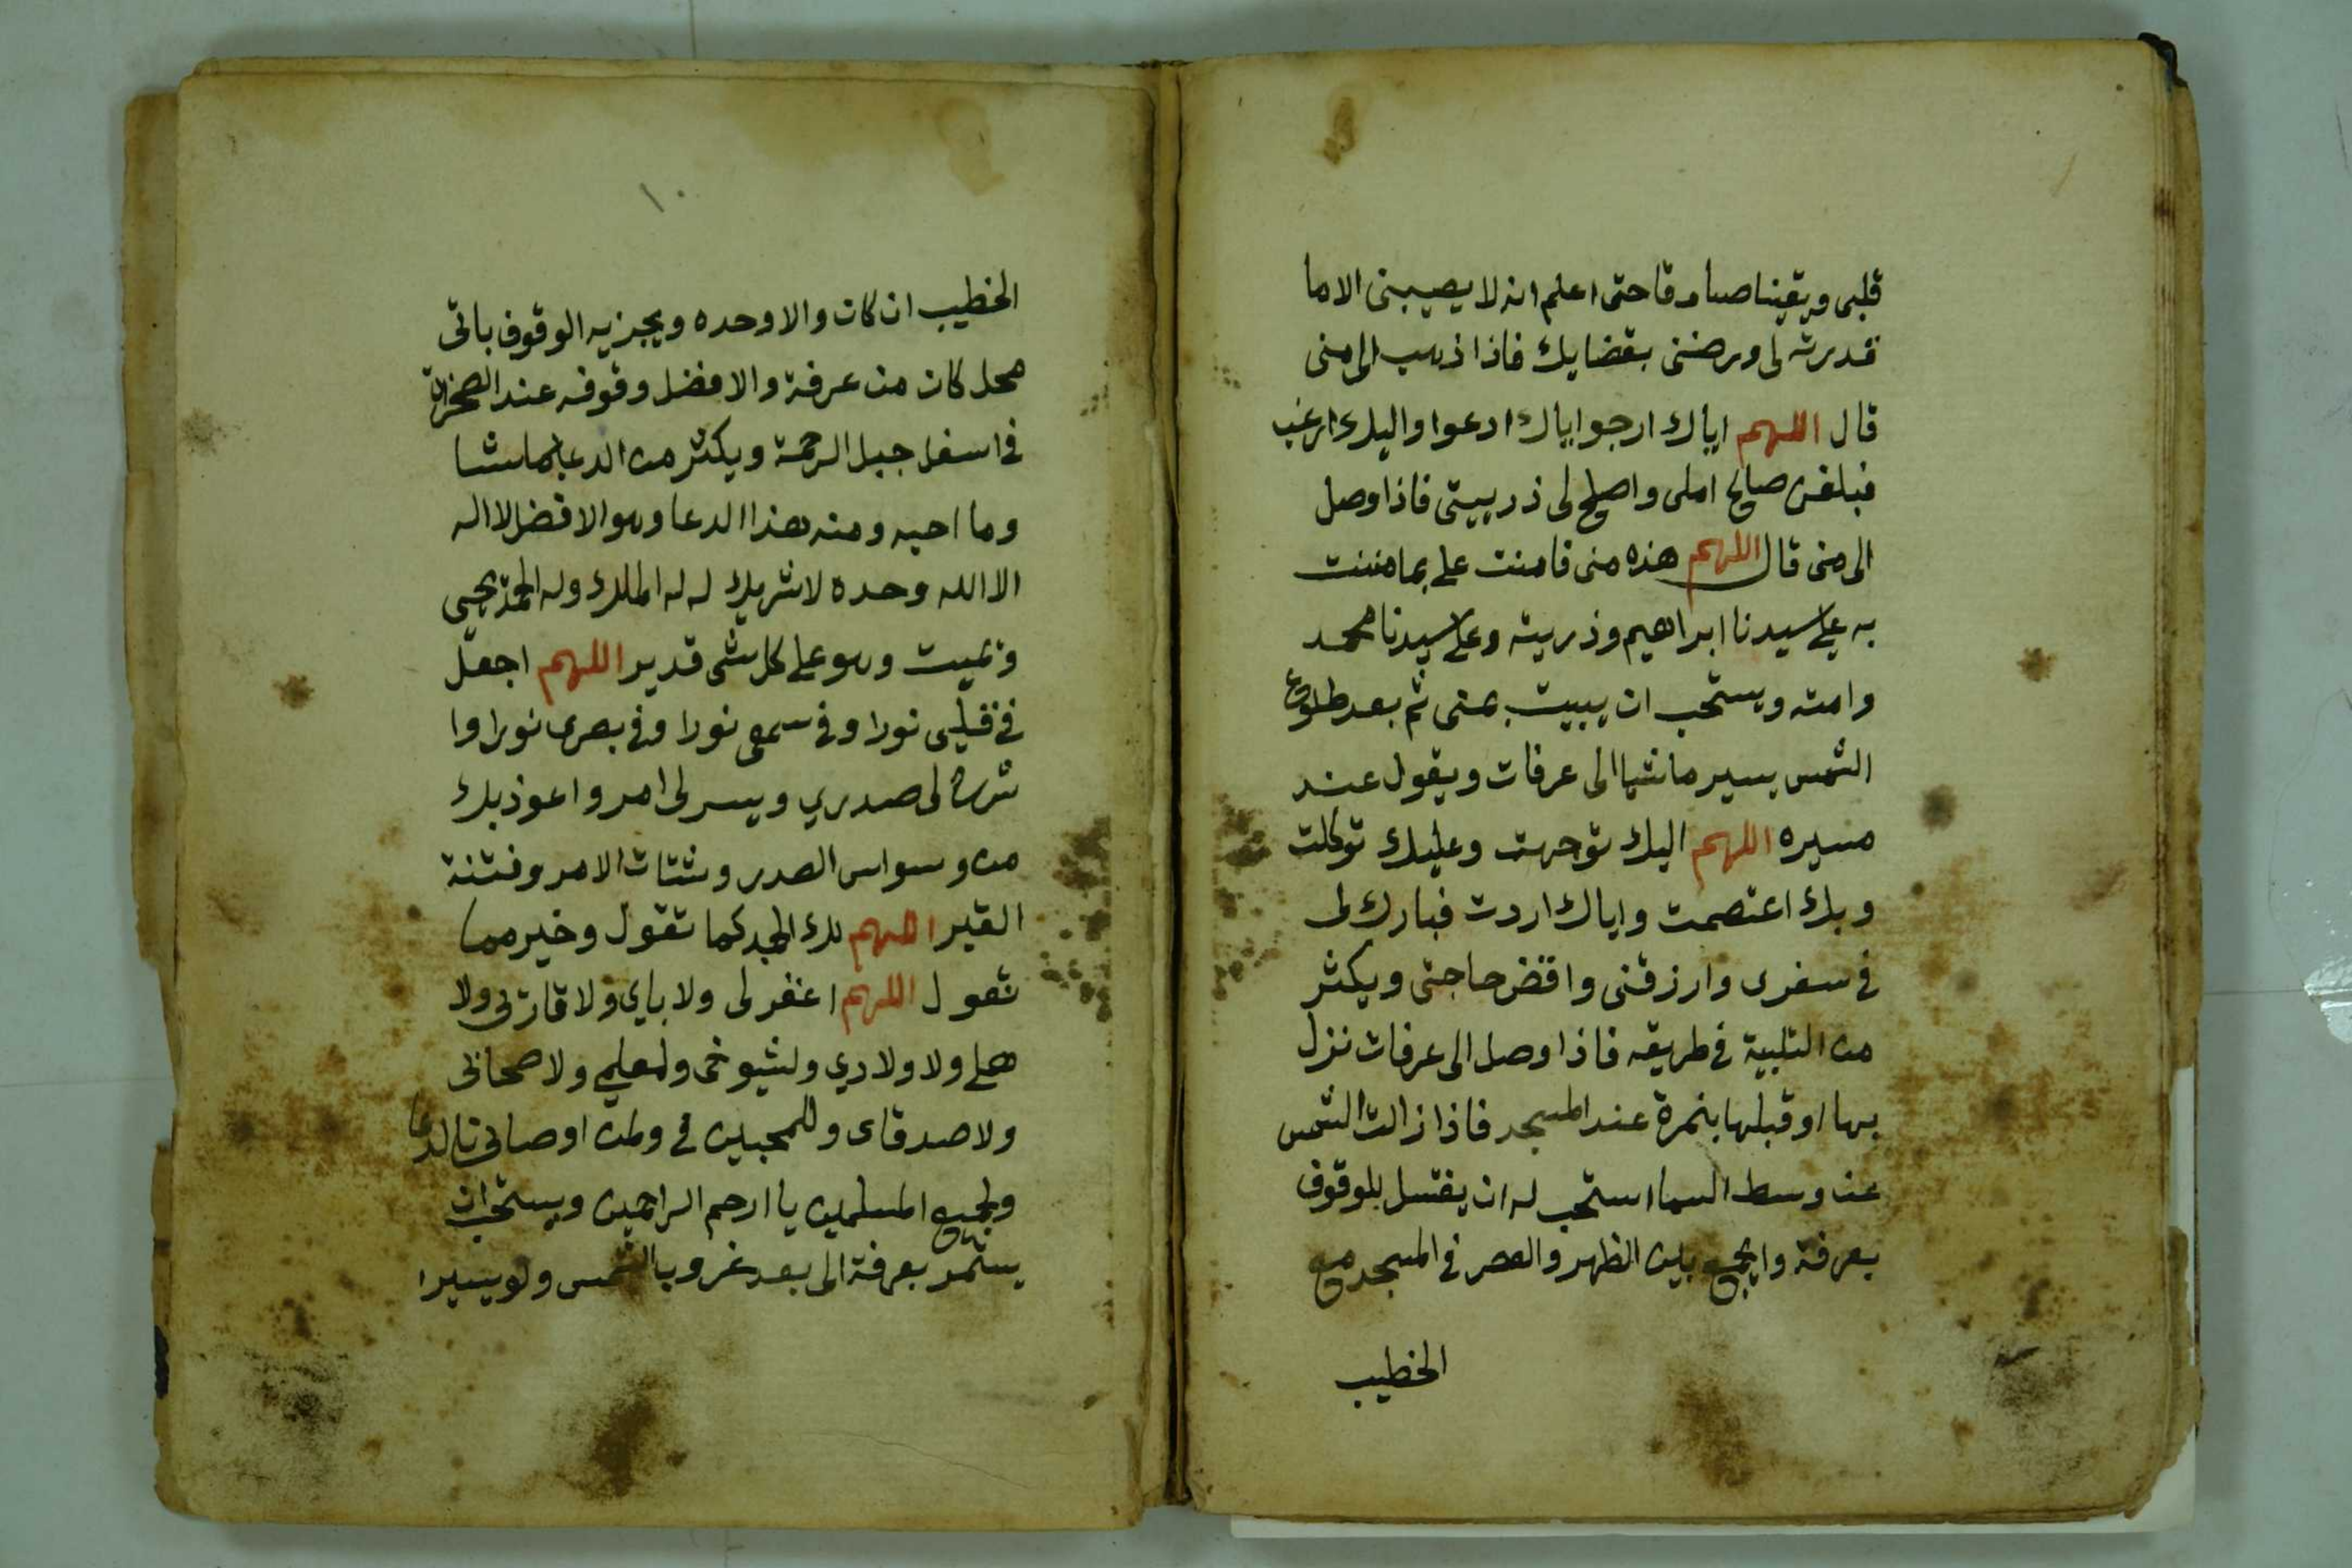 قلبى ويقينا صادقا حتى اعلم انه لا يصيبنى الا ما
قدرته لى ورضنى بقضايك فاذا ذهب الى منى
قال اللهم اياك ارجوا اياك ادعوا واليك ارغب
فبلغنى صالح املى واصلح لى ذريتى فاذا وصل
الى منى قال اللهم هذه منى فامنن على بما مننت
به على سيدنا ابراهيم وذريته وعلى سيدنا محمد
وامته ويستحب ان يبيت بمنى ثم بعد طلوع
الشمس يسير ماشيا الى عرفات ويقول عند
مسيره اللهم اليك توجهت وعليك توكلت
وبك اعتصمت واياك اردت فبارك لى
فى سفرى وارزقنى واقض حاجتى ويكثر
من التلبية فى طريقه فاذا وصل الى عرفات نزل
بها او قبلها بنمرة عند المسجد فاذا زالت الشمس
عن وسط السما استحب له ان يغتسل للوقوف
بعرفة وايجمع بين الظهر والعصر فى المسجد مع
الخطيب
١٠
الخطيب ان كان والا وحده ويجزيه الوقوف باتى
محل كان من عرفة والافضل وقوفه عند الصخرات
فى اسفل جبل الرحمة ويكثر من الدعا بما شا
وما احبه ومنه هذا الدعا وهو الافضل لا اله
الا الله وحده لا شريك له له الملك وله الحمد يحيى
ويميت وهو على كل شى قدير اللهم اجعل
فى قلبى نورا وفى سمعى نورا وفى بصرى نورا وا
شرح لى صدري ويسر لى امر واعوذ بك
من وسواس الصدر وشتات الامر وفتنة
القبر اللهم لك الحمد كما تقول وخير مما
تقول اللهم اغفر لى ولاباي ولاقاربى ولا
هلى ولاولادي ولشيوخى ولمعلمي ولاصحابى
ولاصدقاى وللمحبين فى ولمن اوصانى بالدعا
ولجميع المسلمين يا ارحم الراحمين ويستحب ان
يستمر بعرفة الى بعد غروب الشمس ولو يسيرا